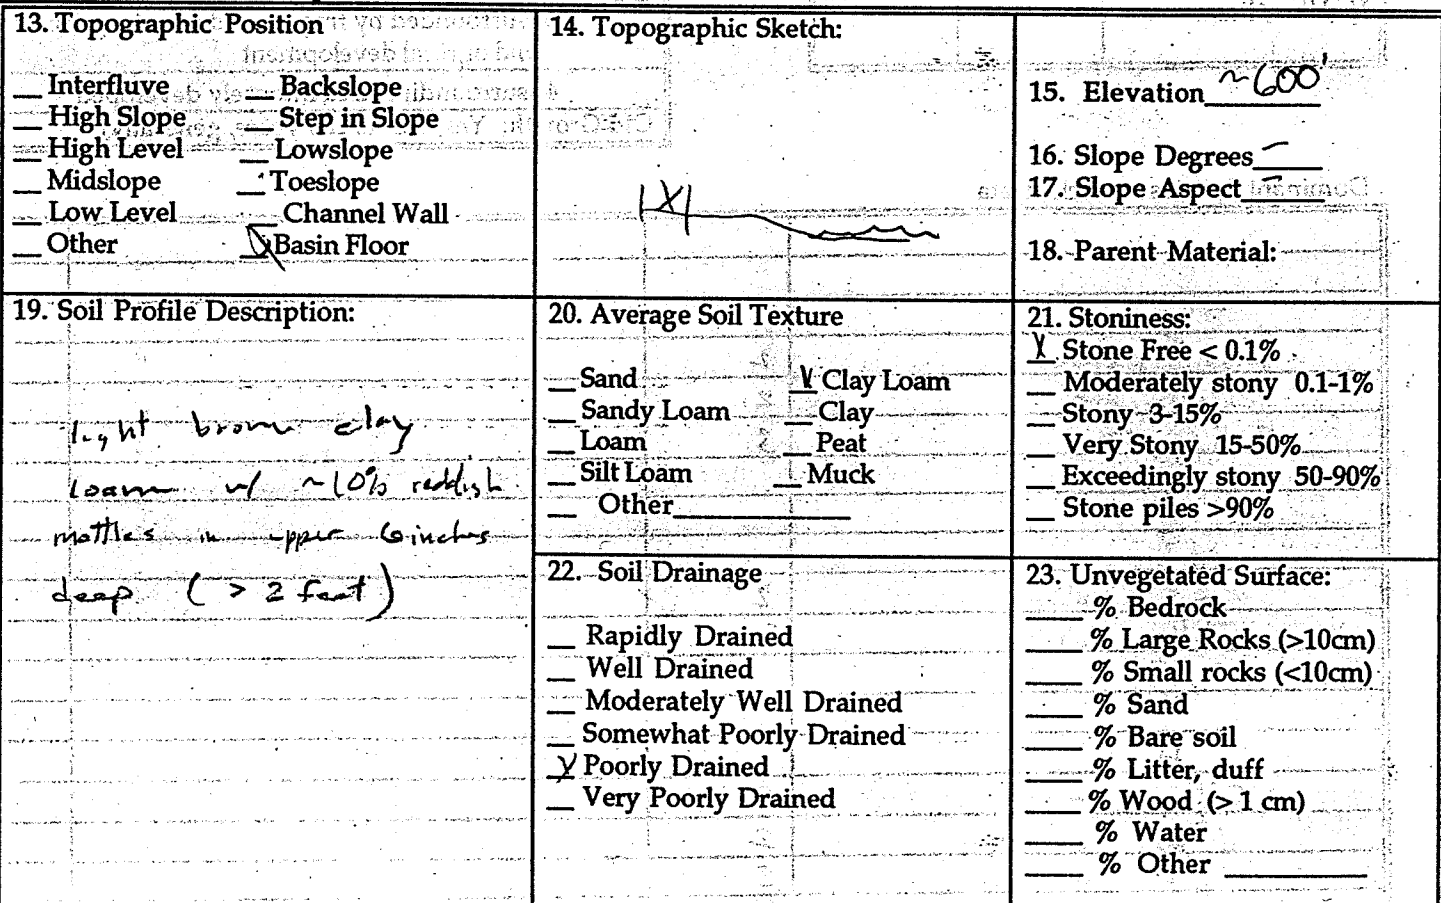 13. Topographic Position
__ Interfluve __ Backslope
__ High Slope __ Step in Slope
__ High Level __ Lowslope
__ Midslope __ Toeslope
__ Low Level __ Channel Wall
__ Other X Basin Floor
14. Topographic Sketch:
X
15. Elevation ~600'
16. Slope Degrees –
17. Slope Aspect –
18. Parent Material:
19. Soil Profile Description:
light brown clay
loam w/ ~10% reddish
mottles in upper 6 inches
deep (> 2 feet)
20. Average Soil Texture
__ Sand X Clay Loam
__ Sandy Loam __ Clay
__ Loam __ Peat
__ Silt Loam __ Muck
__ Other__________
21. Stoniness:
X Stone Free < 0.1%
__ Moderately stony 0.1-1%
__ Stony 3-15%
__ Very Stony 15-50%
__ Exceedingly stony 50-90%
__ Stone piles >90%
22. Soil Drainage
__ Rapidly Drained
__ Well Drained
__ Moderately Well Drained
__ Somewhat Poorly Drained
X Poorly Drained
__ Very Poorly Drained
23. Unvegetated Surface:
____ % Bedrock
____ % Large Rocks (>10cm)
____ % Small rocks (<10cm)
____ % Sand
____ % Bare soil
____ % Litter, duff
____ % Wood (> 1 cm)
____ % Water
____ % Other ________